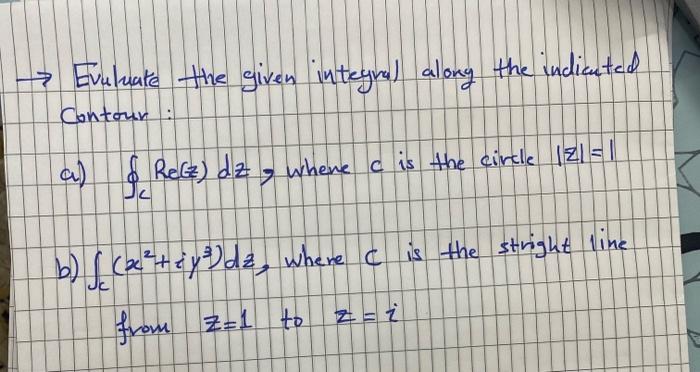 → Evaluate the given integral along the indicated
Contour :
a) ∮_C Re(z) dz , where c is the circle |z|=1
b) ∫_C (x²+iy³)dz, where C is the stright line
from z=1 to z=i